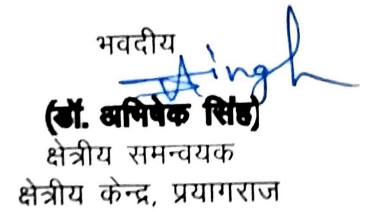 भवदीय
Singh
(डॉ. अभिषेक सिंह)
क्षेत्रीय समन्वयक
क्षेत्रीय केन्द्र, प्रयागराज